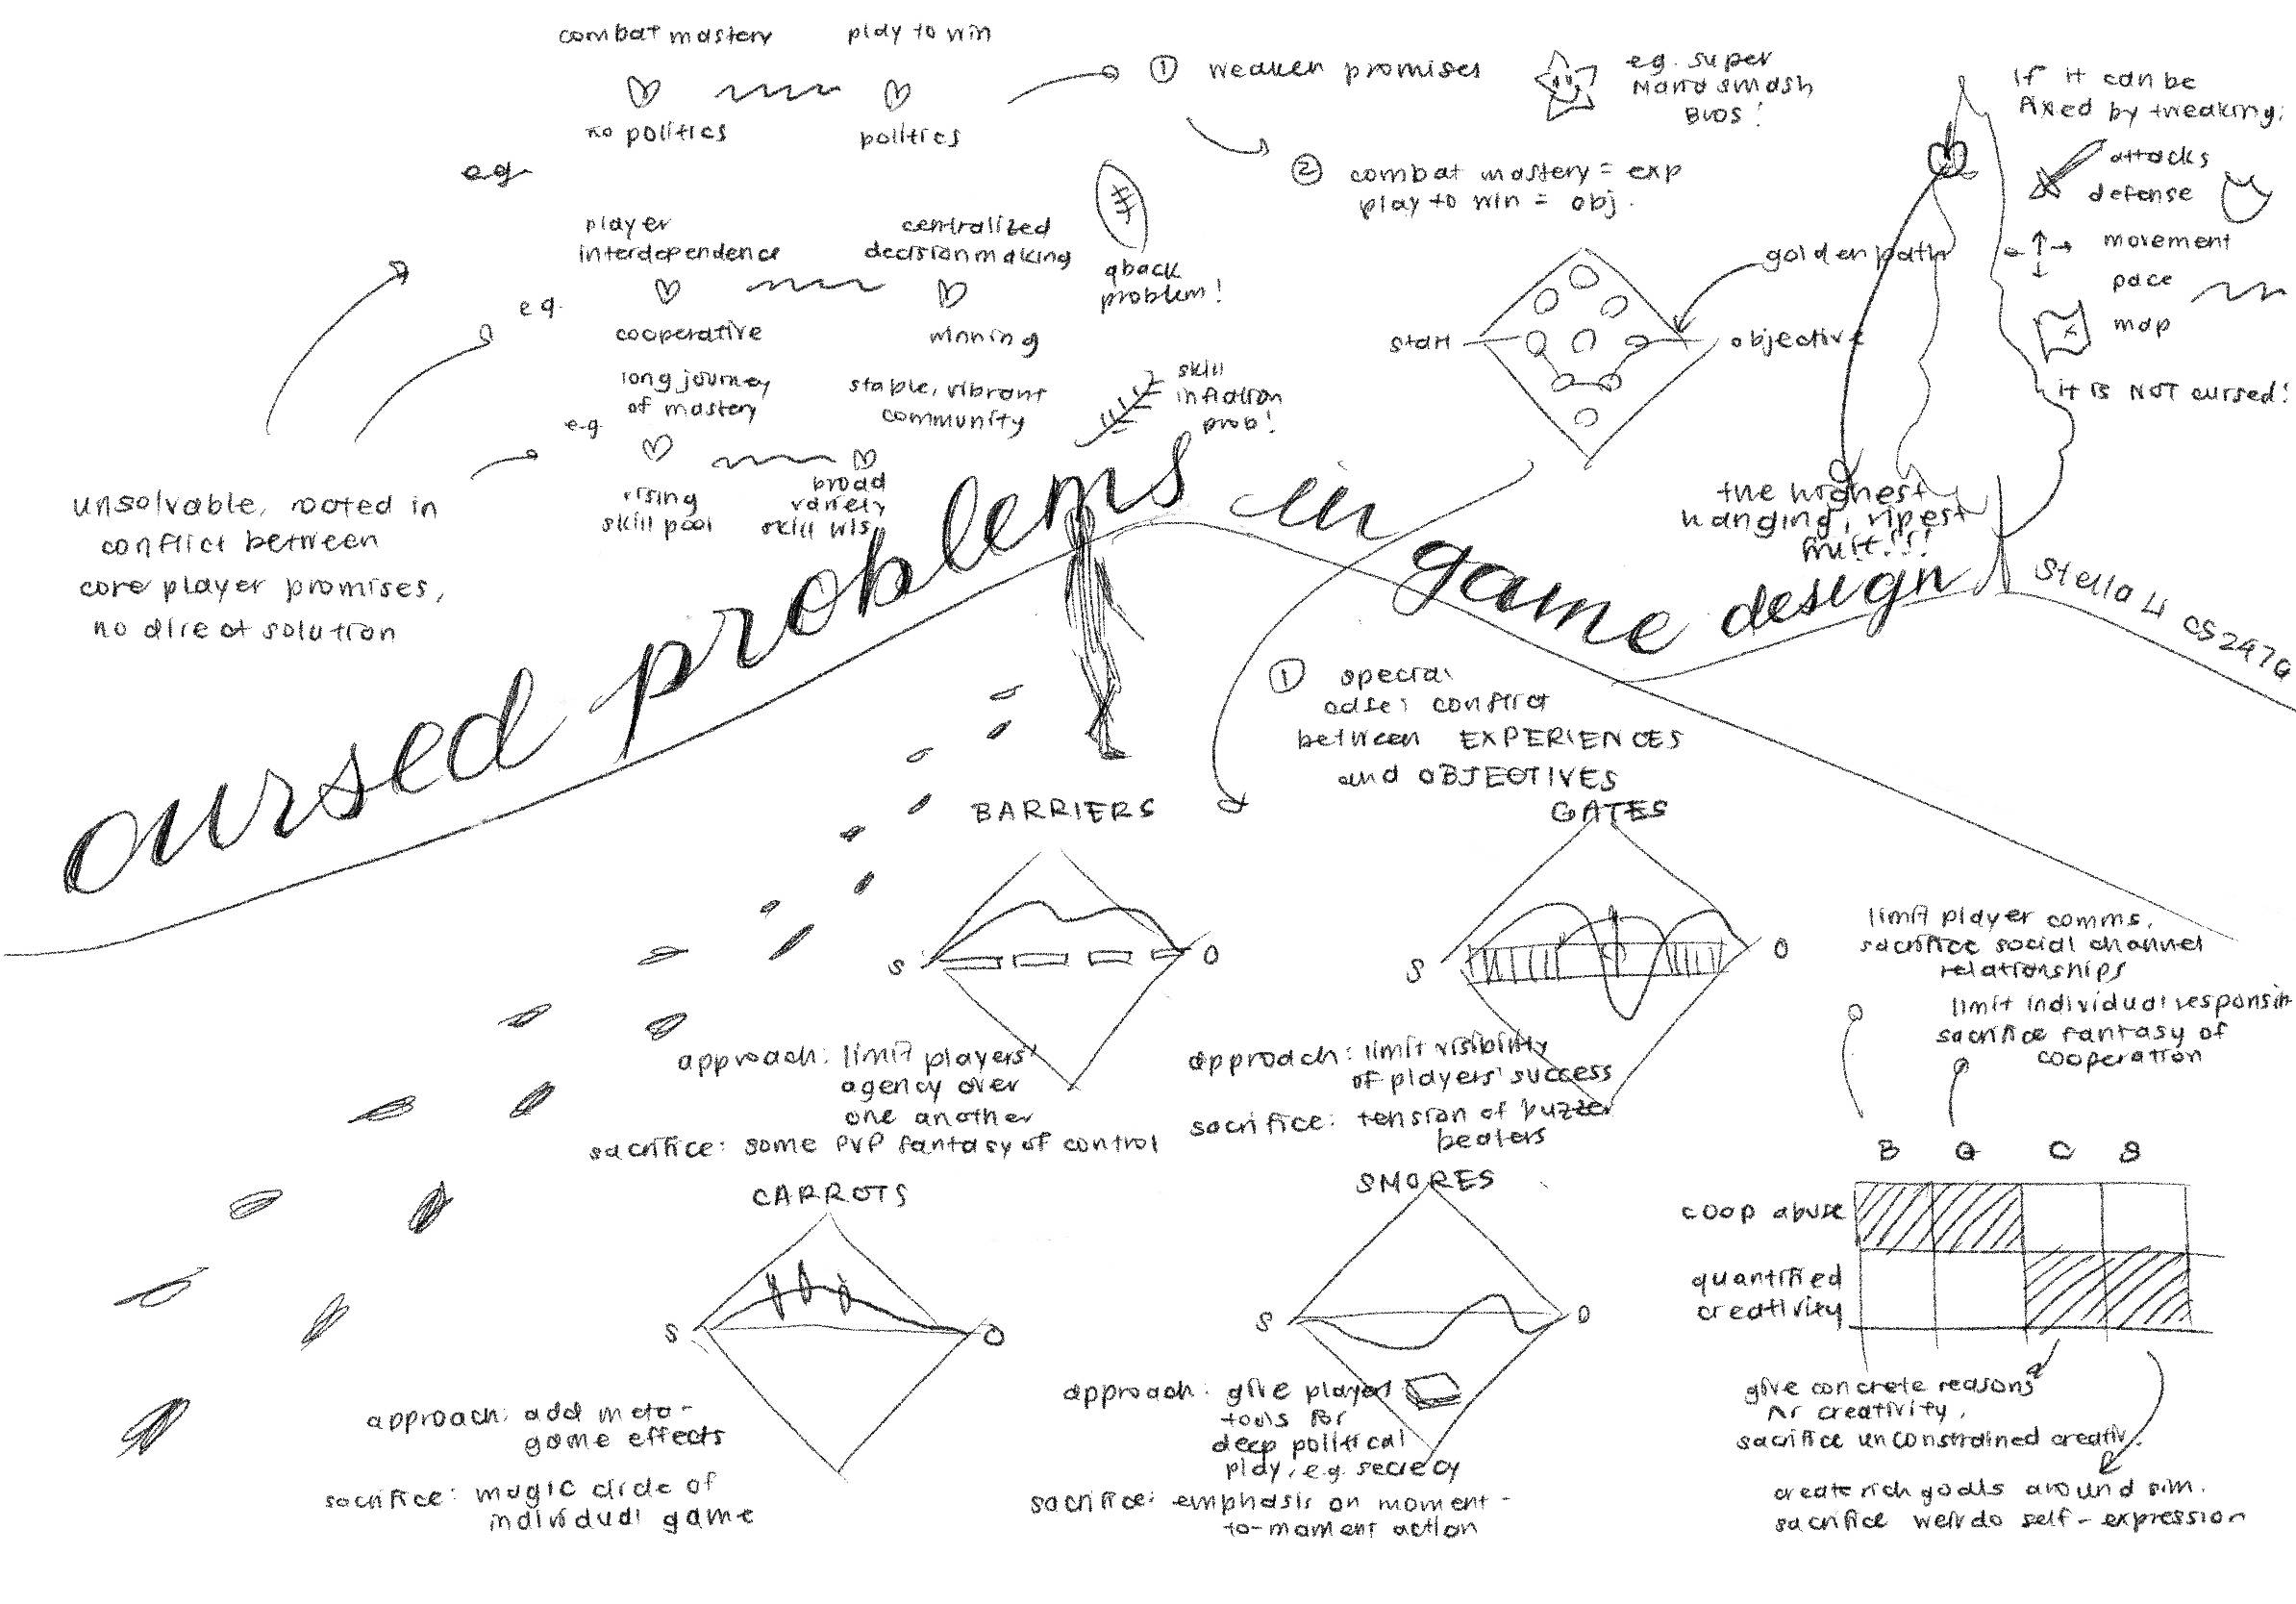 combat mastery
play to win
no politics
politics
① weaken promises
e.g. super
Mario smash
Bros!
② combat mastery = exp
play to win = obj.
If it can be
fixed by tweaking:
attacks
defense
movement
pace
map
it is NOT cursed!
e.g.
player
interdependence
centralized
decisionmaking
qback
problem!
e.g.
cooperative
winning
long journey
of mastery
stable, vibrant
community
skill
inflation
prob!
e.g.
rising
skill pool
broad
variety
skill lvls
golden path
start
objective
the highest
hanging, ripest
fruit!!!
unsolvable, rooted in
conflict between
core player promises,
no direct solution
cursed problems in game design
Stella Li CS247G
① special
case: conflict
between EXPERIENCES
and OBJECTIVES
BARRIERS
S
O
approach: limit players'
agency over
one another
sacrifice: some PVP fantasy of control
GATES
S
O
approach: limit visibility
of players' success
sacrifice: tension of buzzer
beaters
limit player comms,
sacrifice social channel
relationships
limit individual responsib
sacrifice fantasy of
cooperation
CARROTS
S
O
approach: add meta-
game effects
sacrifice: magic circle of
individual game
SMORES
S
O
approach: give player
tools for
deep political
play, e.g. secrecy
sacrifice: emphasis on moment-
to-moment action
B G C S
coop abuse
quantified
creativity
give concrete reasons
for creativity,
sacrifice unconstrained creativ.
create rich goals around sim.
sacrifice weirdo self-expression